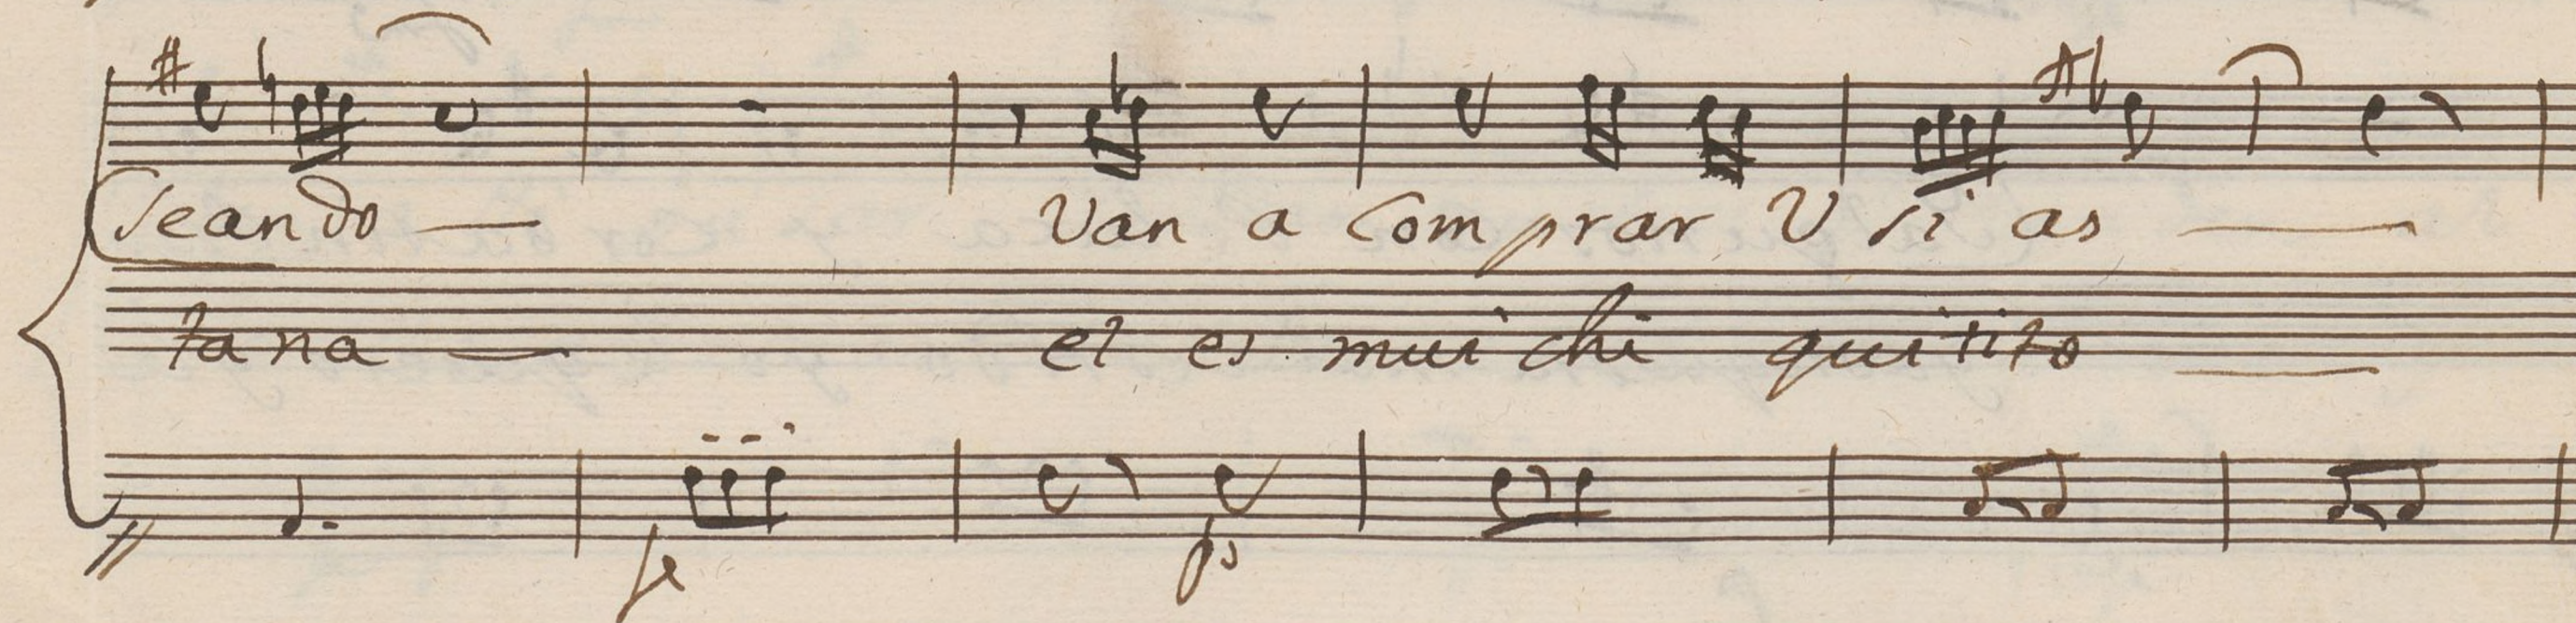 seando — Van a Com prar V si as —
tana — el es mui chi qui rito —
fe po